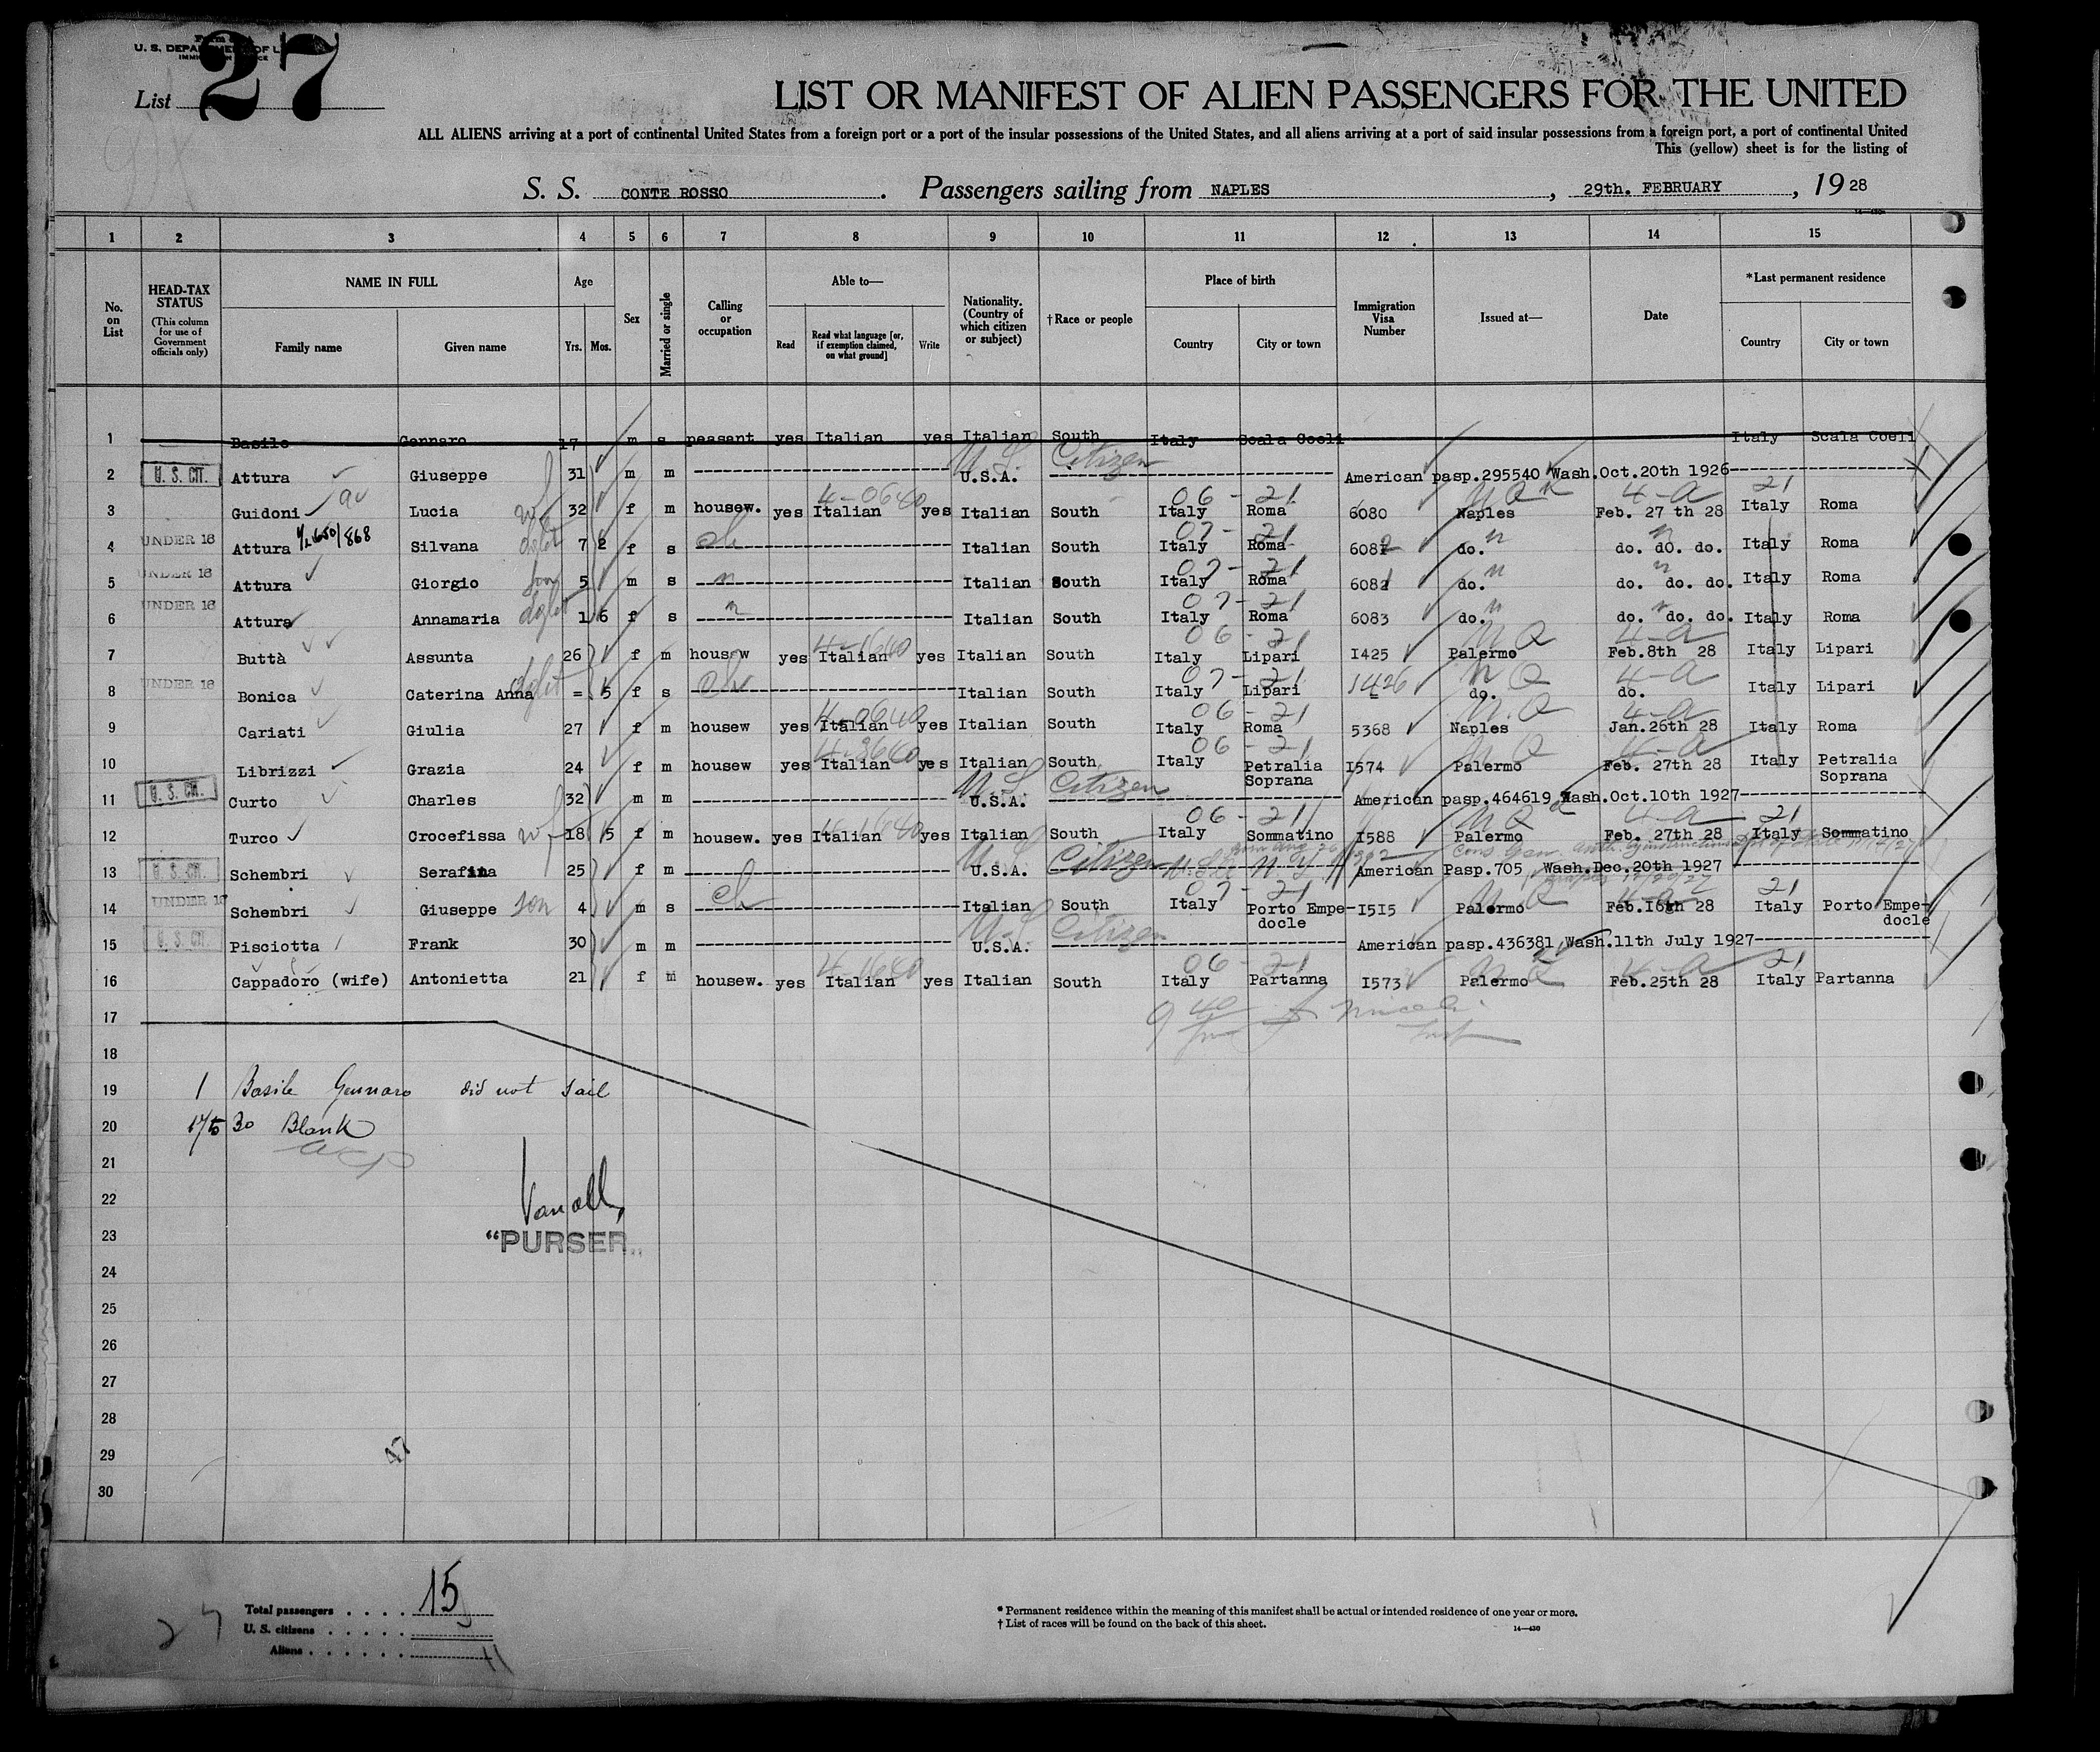 27
U. S. DEPARTMENT OF L
List
LIST OR MANIFEST OF ALIEN PASSENGERS FOR THE UNITED
ALL ALIENS arriving at a port of continental United States from a foreign port or a port of the insular possessions of the United States, and all aliens arriving at a port of said insular possessions from a foreign port, a port of continental United
This (yellow) sheet is for the listing of
S. S. CONTE ROSSO. Passengers sailing from NAPLES, 29th. FEBRUARY, 1928
1 2 3 4 5 6 7 8 9 10 11 12 13 14 15
No. on List
HEAD-TAX STATUS (This column for use of Government officials only)
NAME IN FULL Family name Given name
Age Yrs. Mos.
Sex
Married or single
Calling or occupation
Able to— Read Read what language [or, if exemption claimed, on what ground] Write
Nationality. (Country of which citizen or subject)
†Race or people
Place of birth Country City or town
Immigration Visa Number
Issued at—
Date
*Last permanent residence Country City or town
1 Basile Gennaro 17 m s peasant yes Italian yes Italian South Italy Scala Coeli Italy Scala Coeli
2 U. S. CIT. Attura Giuseppe 31 m m U.S.A. U S Citizen American pasp.295540 Wash.Oct.20th 1926
3 Guidoni Lucia wf 32 f m housew. yes Italian 4-0640 yes Italian South Italy 06 - 21 Roma 6080 Naples Feb. 27 th 28 4-a Italy 21 Roma
4 UNDER 16 Attura Silvana 7 2 f s ch Italian South Italy 07 - 21 Roma 6082 do. do. do. do. Italy Roma
5 UNDER 16 Attura Giorgio son 5 m s Italian South Italy 07 - 21 Roma 6081 do. do. do. do. Italy Roma
6 UNDER 16 Attura Annamaria 1 6 f s Italian South Italy 07 - 21 Roma 6083 do. do. do. do. Italy Roma
7 Buttà Assunta 26 f m housew yes Italian 4-1640 yes Italian South Italy 06 - 21 Lipari I425 Palermo Feb.8th 28 4-a Italy Lipari
8 UNDER 16 Bonica Caterina Anna = 5 f s ch Italian South Italy 07 - 21 Lipari 1426 do. do. 4-a Italy Lipari
9 Cariati Giulia 27 f m housew yes Italian 4-0640 yes Italian South Italy 06 - 21 Roma 5368 Naples Jan.26th 28 4-a Italy Roma
10 Librizzi Grazia 24 f m housew yes Italian 4-3640 yes Italian South Italy 06 - 21 Petralia Soprana I574 Palermo Feb. 27th 28 4-a Italy Petralia Soprana
11 U. S. CIT. Curto Charles 32 m m U.S.A. U. S. Citizen American pasp.464619 Wash.Oct.10th 1927
12 Turco Crocefissa wf 18 5 f m housew. yes Italian yes Italian South Italy 06 - 21 Sommatino I588 Palermo Feb. 27th 28 4-a Italy 21 Sommatino
13 U. S. CIT. Schembri Serafina 25 f m U.S.A. U S Citizen N. Y. American Pasp.705 Wash.Dec.20th 1927
14 UNDER 16 Schembri Giuseppe son 4 m s ch Italian South Italy 07 - 21 Porto Empedocle I5I5 Palermo Feb.I6th 28 4-a Italy 21 Porto Empedocle
15 U. S. CIT. Pisciotta Frank 30 m m U.S.A. U S Citizen American pasp.436381 Wash.11th July 1927
16 Cappadoro (wife) Antonietta 21 f m housew. yes Italian 4-1640 yes Italian South Italy 06 - 21 Partanna I573 Palermo Feb.25th 28 4-a Italy 21 Partanna
17
18
19 1 Basile Gennaro did not sail
20 17/to 30 Blank
21
22
23 "PURSER"
24
25
26
27
28
29
30
Total passengers . . . . 15
U. S. citizens . . . . .
Aliens . . . . . . 11
27
* Permanent residence within the meaning of this manifest shall be actual or intended residence of one year or more.
† List of races will be found on the back of this sheet.
14—430